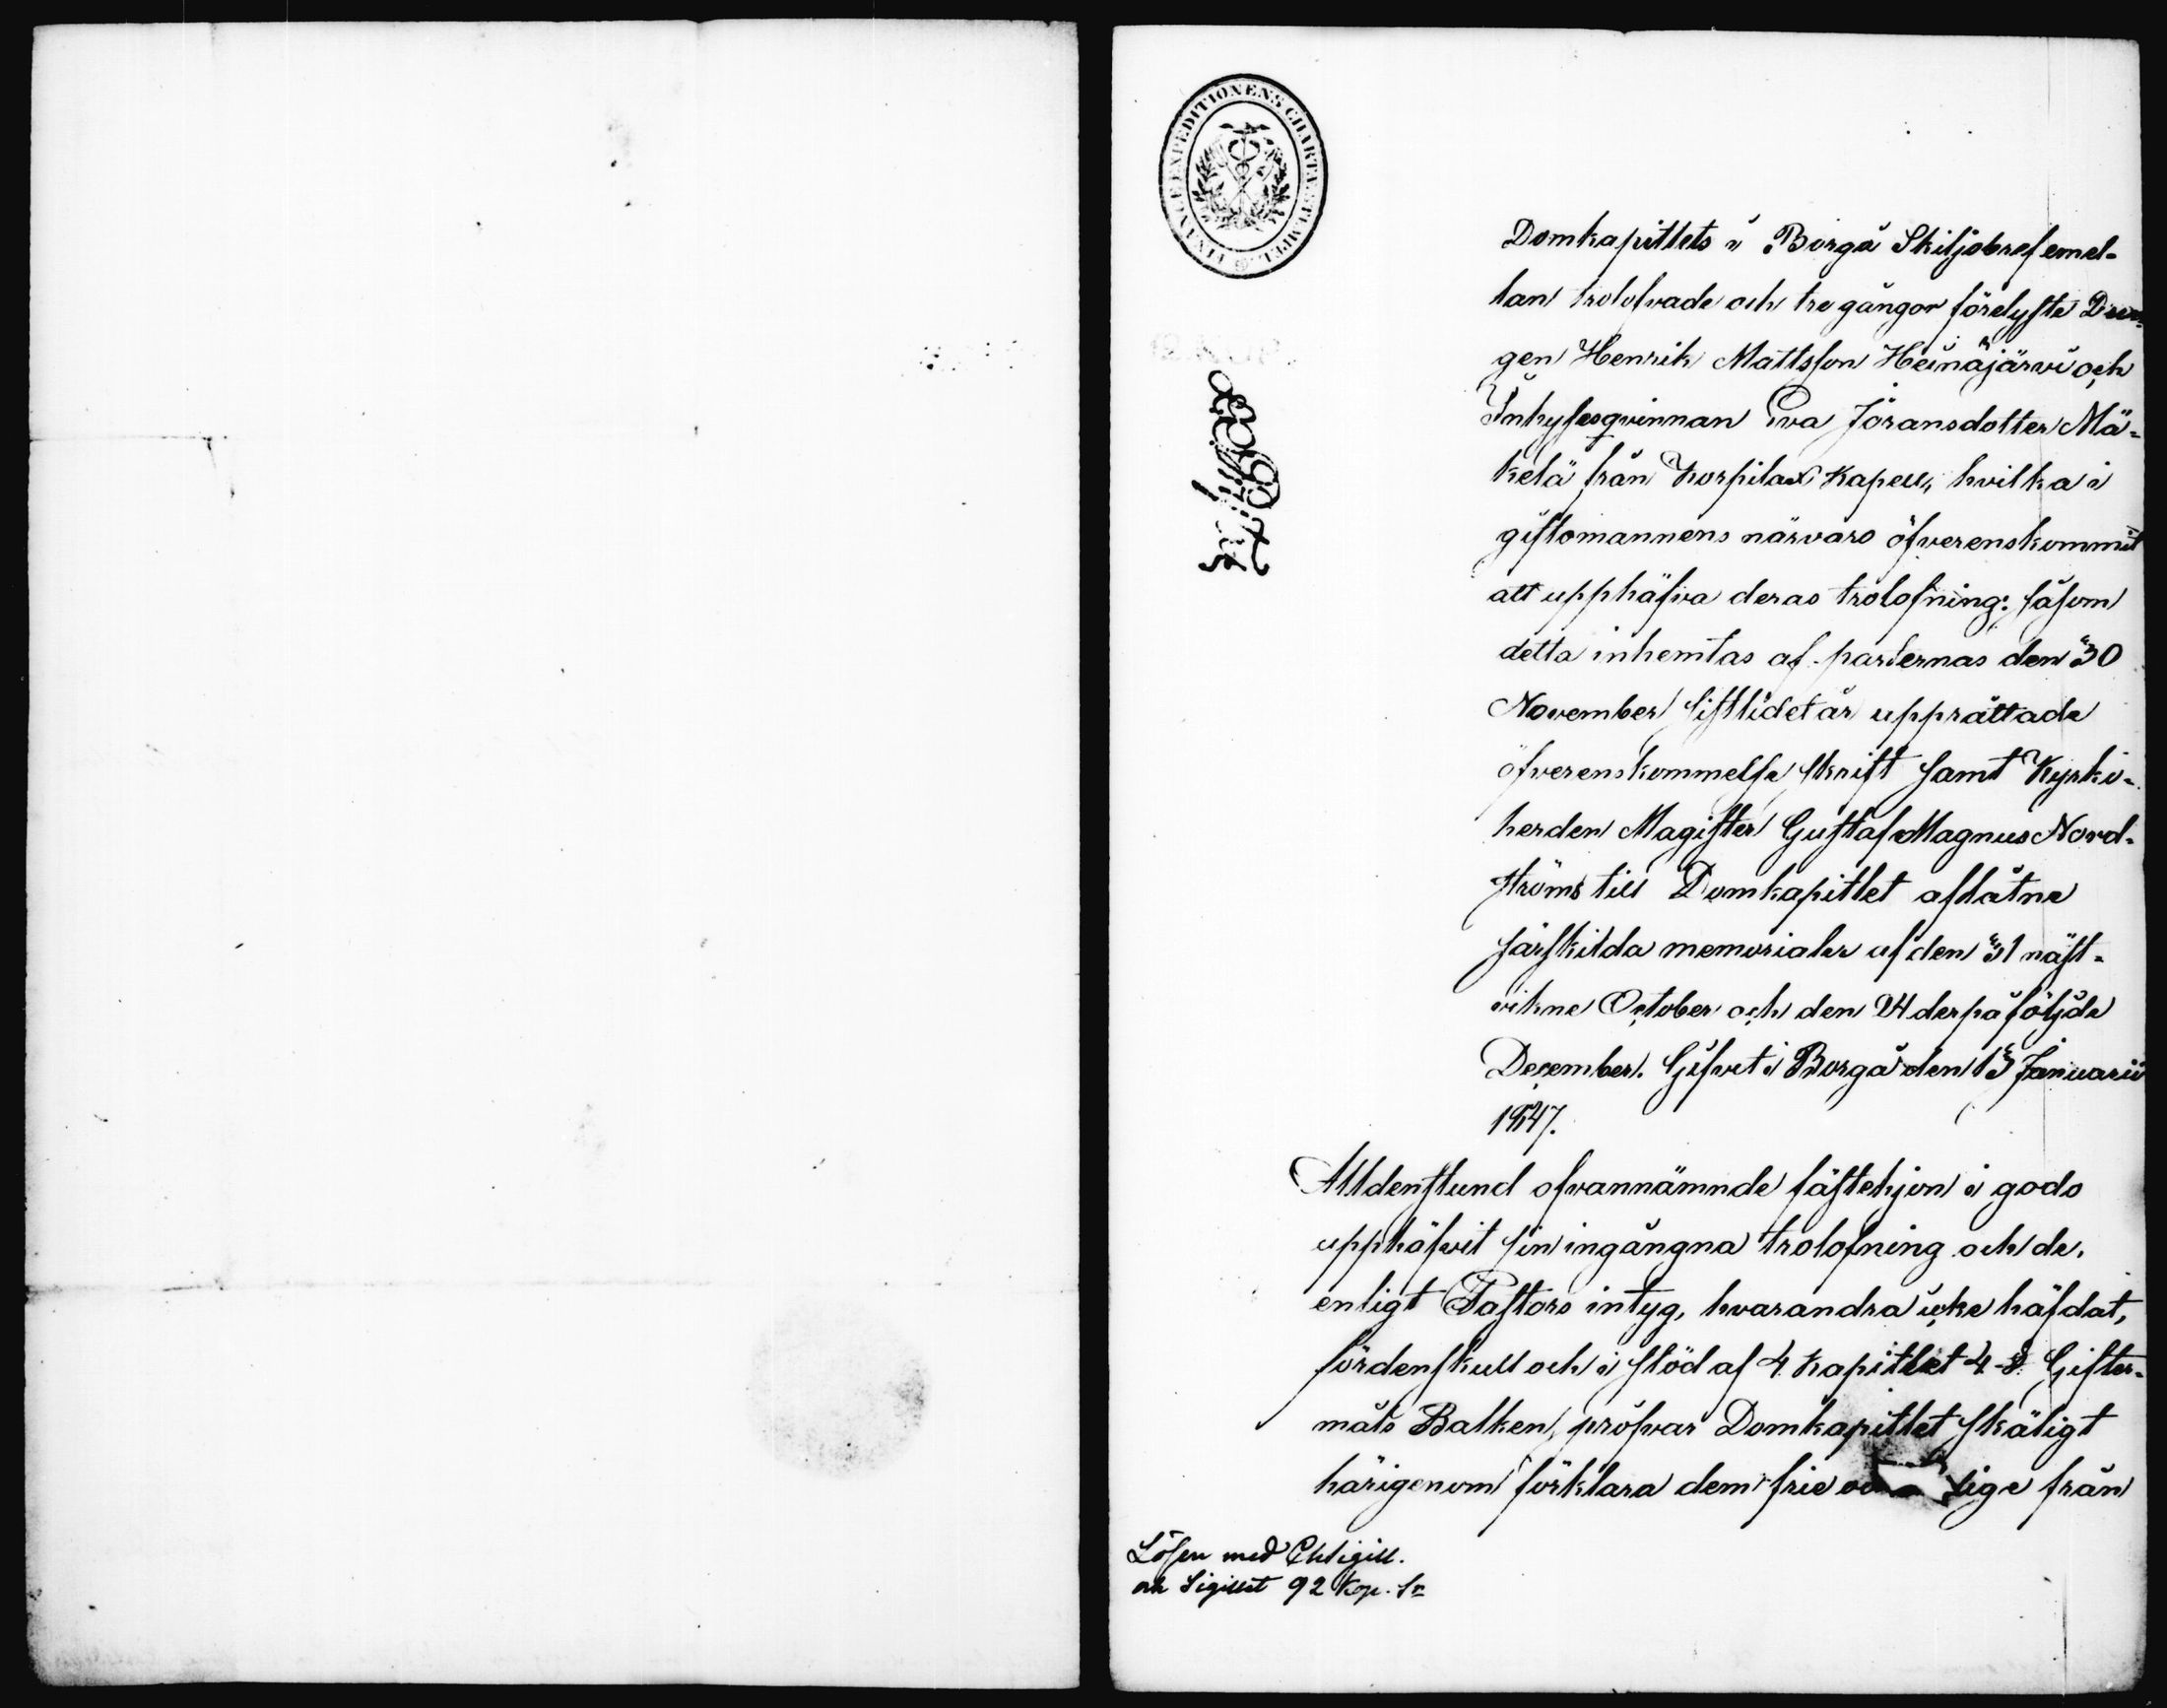 FINANCE EXPEDITIONENS CHARTÆ STEMPEL.
Domkapitlets i Borgå Skiljobref emel-
lan trolofvade och tre gånger förelyste Dren-
gen Henrik Mattsson Heinäjärvi och
Inhysesqvinnan Eva Jöransdotter Mä-
kelä från Korpilax Kapell, hvilka i
giftomannens närvaro öfverenskommit
att upphäfva deras trolofning: såsom
detta inhemtas af parternas den 30
November sistlidet år upprättade
öfverenskommelse skrift samt Kyrko-
herden Magister Gustaf Magnus Nord-
ströms till Domkapitlet aflåtne
särskilda memorialer af den 31 näst-
vikne October och den 24 derpåföljde
December. Gifvet i Borgå den 13 Januarii
1847.
Alldenstund ofvannämnde fästehjon i godo
upphäfvit sin ingångna trolofning och de,
enligt Pastors intyg, hvarandra icke häfdat,
fördenskull och i stöd af 4 Kapitlet 4 § Gifter-
måls Balken, pröfvar Domkapitlet skäligt
härigenom förklara dem frie lige från
Lösen med
och Sigillet 92 Kop. Sr